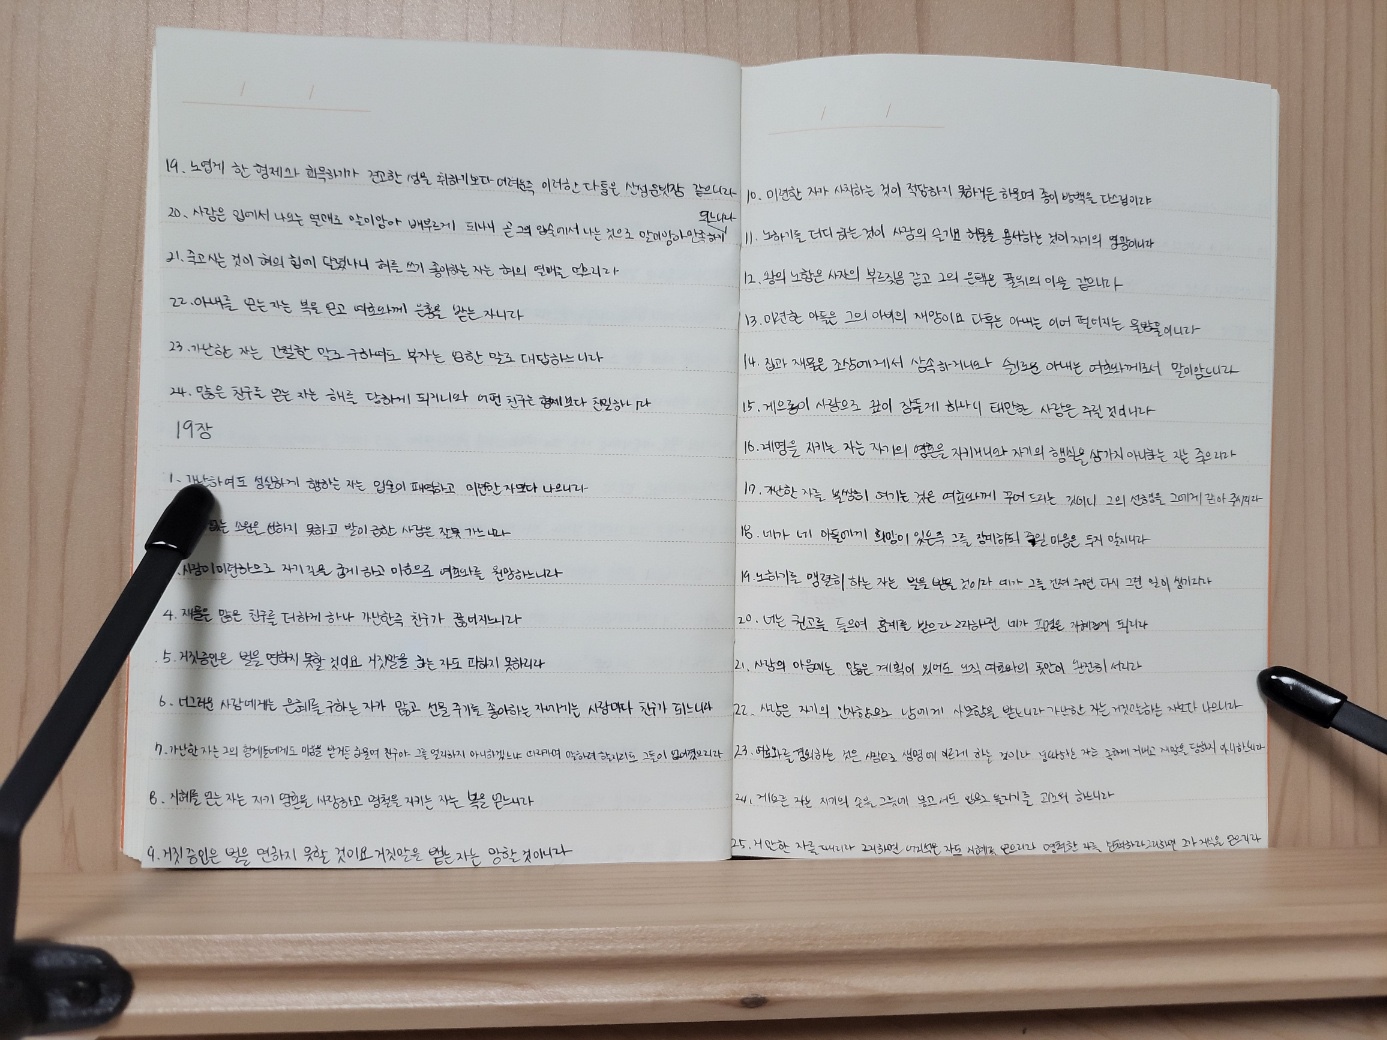 19. 노엽게 한 형제와 화목하기가 견고한 성을 취하기보다 어려운즉 이러한 다툼은 산성문빗장 같으니라
20. 사람은 입에서 나오는 열매로 말미암아 배부르게 되나니 곧 그의 입술에서 나는 것으로 말미암아 만족하게
되느니라
21. 죽고 사는 것이 혀의 힘에 달렸나니 혀를 쓰기 좋아하는 자는 혀의 열매를 먹으리라
22. 아내를 얻는 자는 복을 얻고 여호와께 은총을 받는 자니라
23. 가난한 자는 간절한 말로 구하여도 부자는 엄한 말로 대답하느니라
24. 많은 친구를 얻는 자는 해를 당하게 되거니와 어떤 친구는 형제보다 친밀하니라
19장
1. 가난하여도 성실하게 행하는 자는 입술이 패역하고 미련한 자보다 나으니라
없는 소원은 선하지 못하고 발이 급한 사람은 잘못 가느니라
사람이 미련하므로 자기 길을 굽게 하고 마음으로 여호와를 원망하느니라
4. 재물은 많은 친구를 더하게 하나 가난한즉 친구가 끊어지느니라
5. 거짓증인은 벌을 면하지 못할 것이요 거짓말을 하는 자도 피하지 못하리라
6. 너그러운 사람에게는 은혜를 구하는 자가 많고 선물 주기를 좋아하는 자에게는 사람마다 친구가 되느니라
7. 가난한 자는 그의 형제들에게도 미움을 받거든 하물며 친구야 그를 멀리하지 아니하겠느냐 따라가며 말하려 할지라도 그들이 없어졌으리라
8. 지혜를 얻는 자는 자기 영혼을 사랑하고 명철을 지키는 자는 복을 얻느니라
9. 거짓증인은 벌을 면하지 못할 것이요 거짓말을 뱉는 자는 망할 것이니라
10. 미련한 자가 사치하는 것이 적당하지 못하거든 하물며 종이 방백을 다스림이랴
11. 노하기를 더디 하는 것이 사람의 슬기요 허물을 용서하는 것이 자기의 영광이니라
12. 왕의 노함은 사자의 부르짖음 같고 그의 은택은 풀 위의 이슬 같으니라
13. 미련한 아들은 그의 아버지의 재앙이요 다투는 아내는 이어 떨어지는 물방울이니라
14. 집과 재물은 조상에게서 상속하거니와 슬기로운 아내는 여호와께로서 말미암느니라
15. 게으름이 사람으로 깊이 잠들게 하나니 태만한 사람은 주릴 것이니라
16. 계명을 지키는 자는 자기의 영혼을 지키거니와 자기의 행실을 삼가지 아니하는 자는 죽으리라
17. 가난한 자를 불쌍히 여기는 것은 여호와께 꾸어 드리는 것이니 그의 선행을 그에게 갚아 주시리라
18. 네가 네 아들에게 희망이 있은즉 그를 징계하되 죽일 마음은 두지 말지니라
19. 노하기를 맹렬히 하는 자는 벌을 받을 것이라 네가 그를 건져 주면 다시 그런 일이 생기리라
20. 너는 권고를 들으며 훈계를 받으라 그리하면 네가 필경은 지혜롭게 되리라
21. 사람의 마음에는 많은 계획이 있어도 오직 여호와의 뜻만이 완전히 서리라
22. 사람은 자기의 인자함으로 남에게 사모함을 받느니라 가난한 자는 거짓말하는 자보다 나으니라
23. 여호와를 경외하는 것은 사람으로 생명에 이르게 하는 것이라 경외하는 자는 족하게 지내고 재앙을 당하지 아니하느니라
24. 게으른 자는 자기의 손을 그릇에 넣고서도 입으로 올리기를 괴로워 하느니라
25. 거만한 자를 때리라 그리하면 어리석은 자도 지혜를 얻으리라 명철한 자를 견책하라 그리하면 그가 지식을 얻으리라